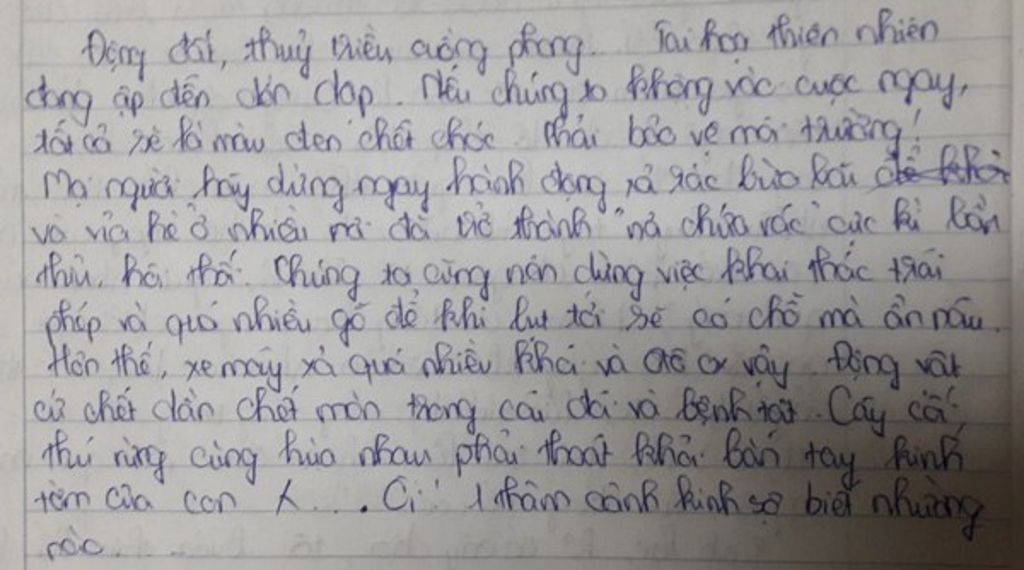 Động đất, thuỷ triều cuồng phong... Tai hoạ thiên nhiên
đang ập đến dồn dập. Nếu chúng ta không vác cuộc ngay,
tất cả sẽ là màu đen chết chóc. Phải bảo vệ môi trường!
Mọi người hãy dừng ngay hành động xả rác bừa bãi
và vỉa hè ở nhiều nơi đã trở thành "nhà chứa rác" cực kì bẩn
thỉu, hôi thối. Chúng ta cũng nên dừng việc khai thác trái
phép và quá nhiều gỗ để khi lụt tới sẽ có chỗ mà ẩn náu.
Hơn thế, xe máy xả quá nhiều khói và ô tô cx vậy. Động vật
cứ chết dần chết mòn trong cái đói và bệnh tật. Cây cối,
thú rừng cùng hùa nhau phải thoát khỏi bàn tay kinh
tởm của con x.... Ôi! 1 thảm cảnh kinh sợ biết nhường
nào.